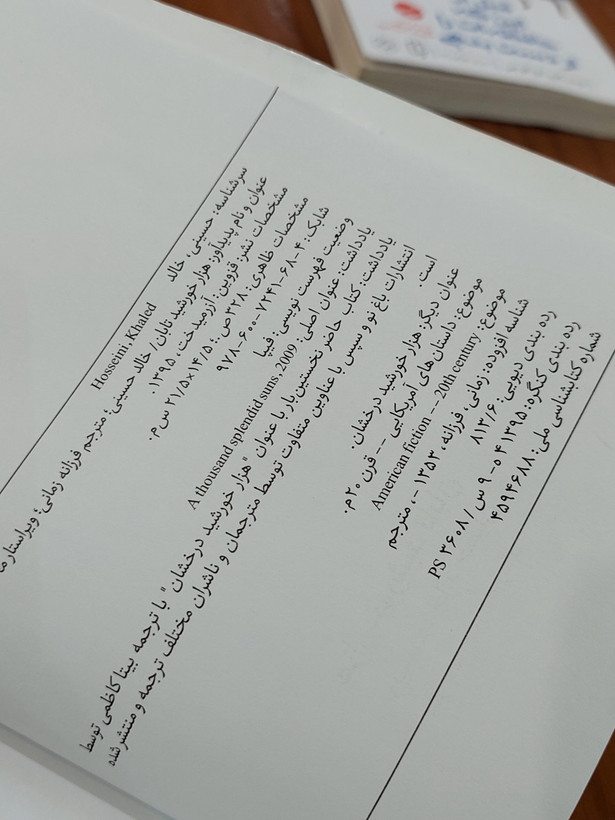 سرشناسه: حسینی، خالد
Hosseini, Khaled
عنوان و نام پدیدآور: هزار خورشید تابان / خالد حسینی؛ مترجم فرزانه زمانی؛ ویراستار
مشخصات نشر: قزوین: آزرمیدخت، ۱۳۹۵.
مشخصات ظاهری: ۳۲۸ ص.؛ ۱۴/۵×۲۱/۵ س م.
شابک: ۴-۶۸-۷۲۴۱-۶۰۰-۹۷۸
وضعیت فهرست نویسی: فیپا
یادداشت: عنوان اصلی: A thousand splendid suns, 2009
یادداشت: کتاب حاضر نخستین بار با عنوان "هزار خورشید درخشان" با ترجمه بیتا کاظمی توسط
انتشارات باغ نو و سپس با عناوین متفاوت توسط مترجمان و ناشران مختلف ترجمه و منتشر شده
است.
عنوان دیگر: هزار خورشید درخشان.
موضوع: داستان های آمریکایی -- قرن ۲۰م.
موضوع: American fiction -- 20th century
شناسه افزوده: زمانی، فرزانه، ۱۳۵۳ -، مترجم
رده بندی دیویی: ۸۱۳/۶
رده بندی کنگره: ۱۳۹۵ ۴۱ ۵-۹ س/ PS ۳۶۰۸
شماره کتابشناسی ملی: ۴۵۹۴۶۸۸